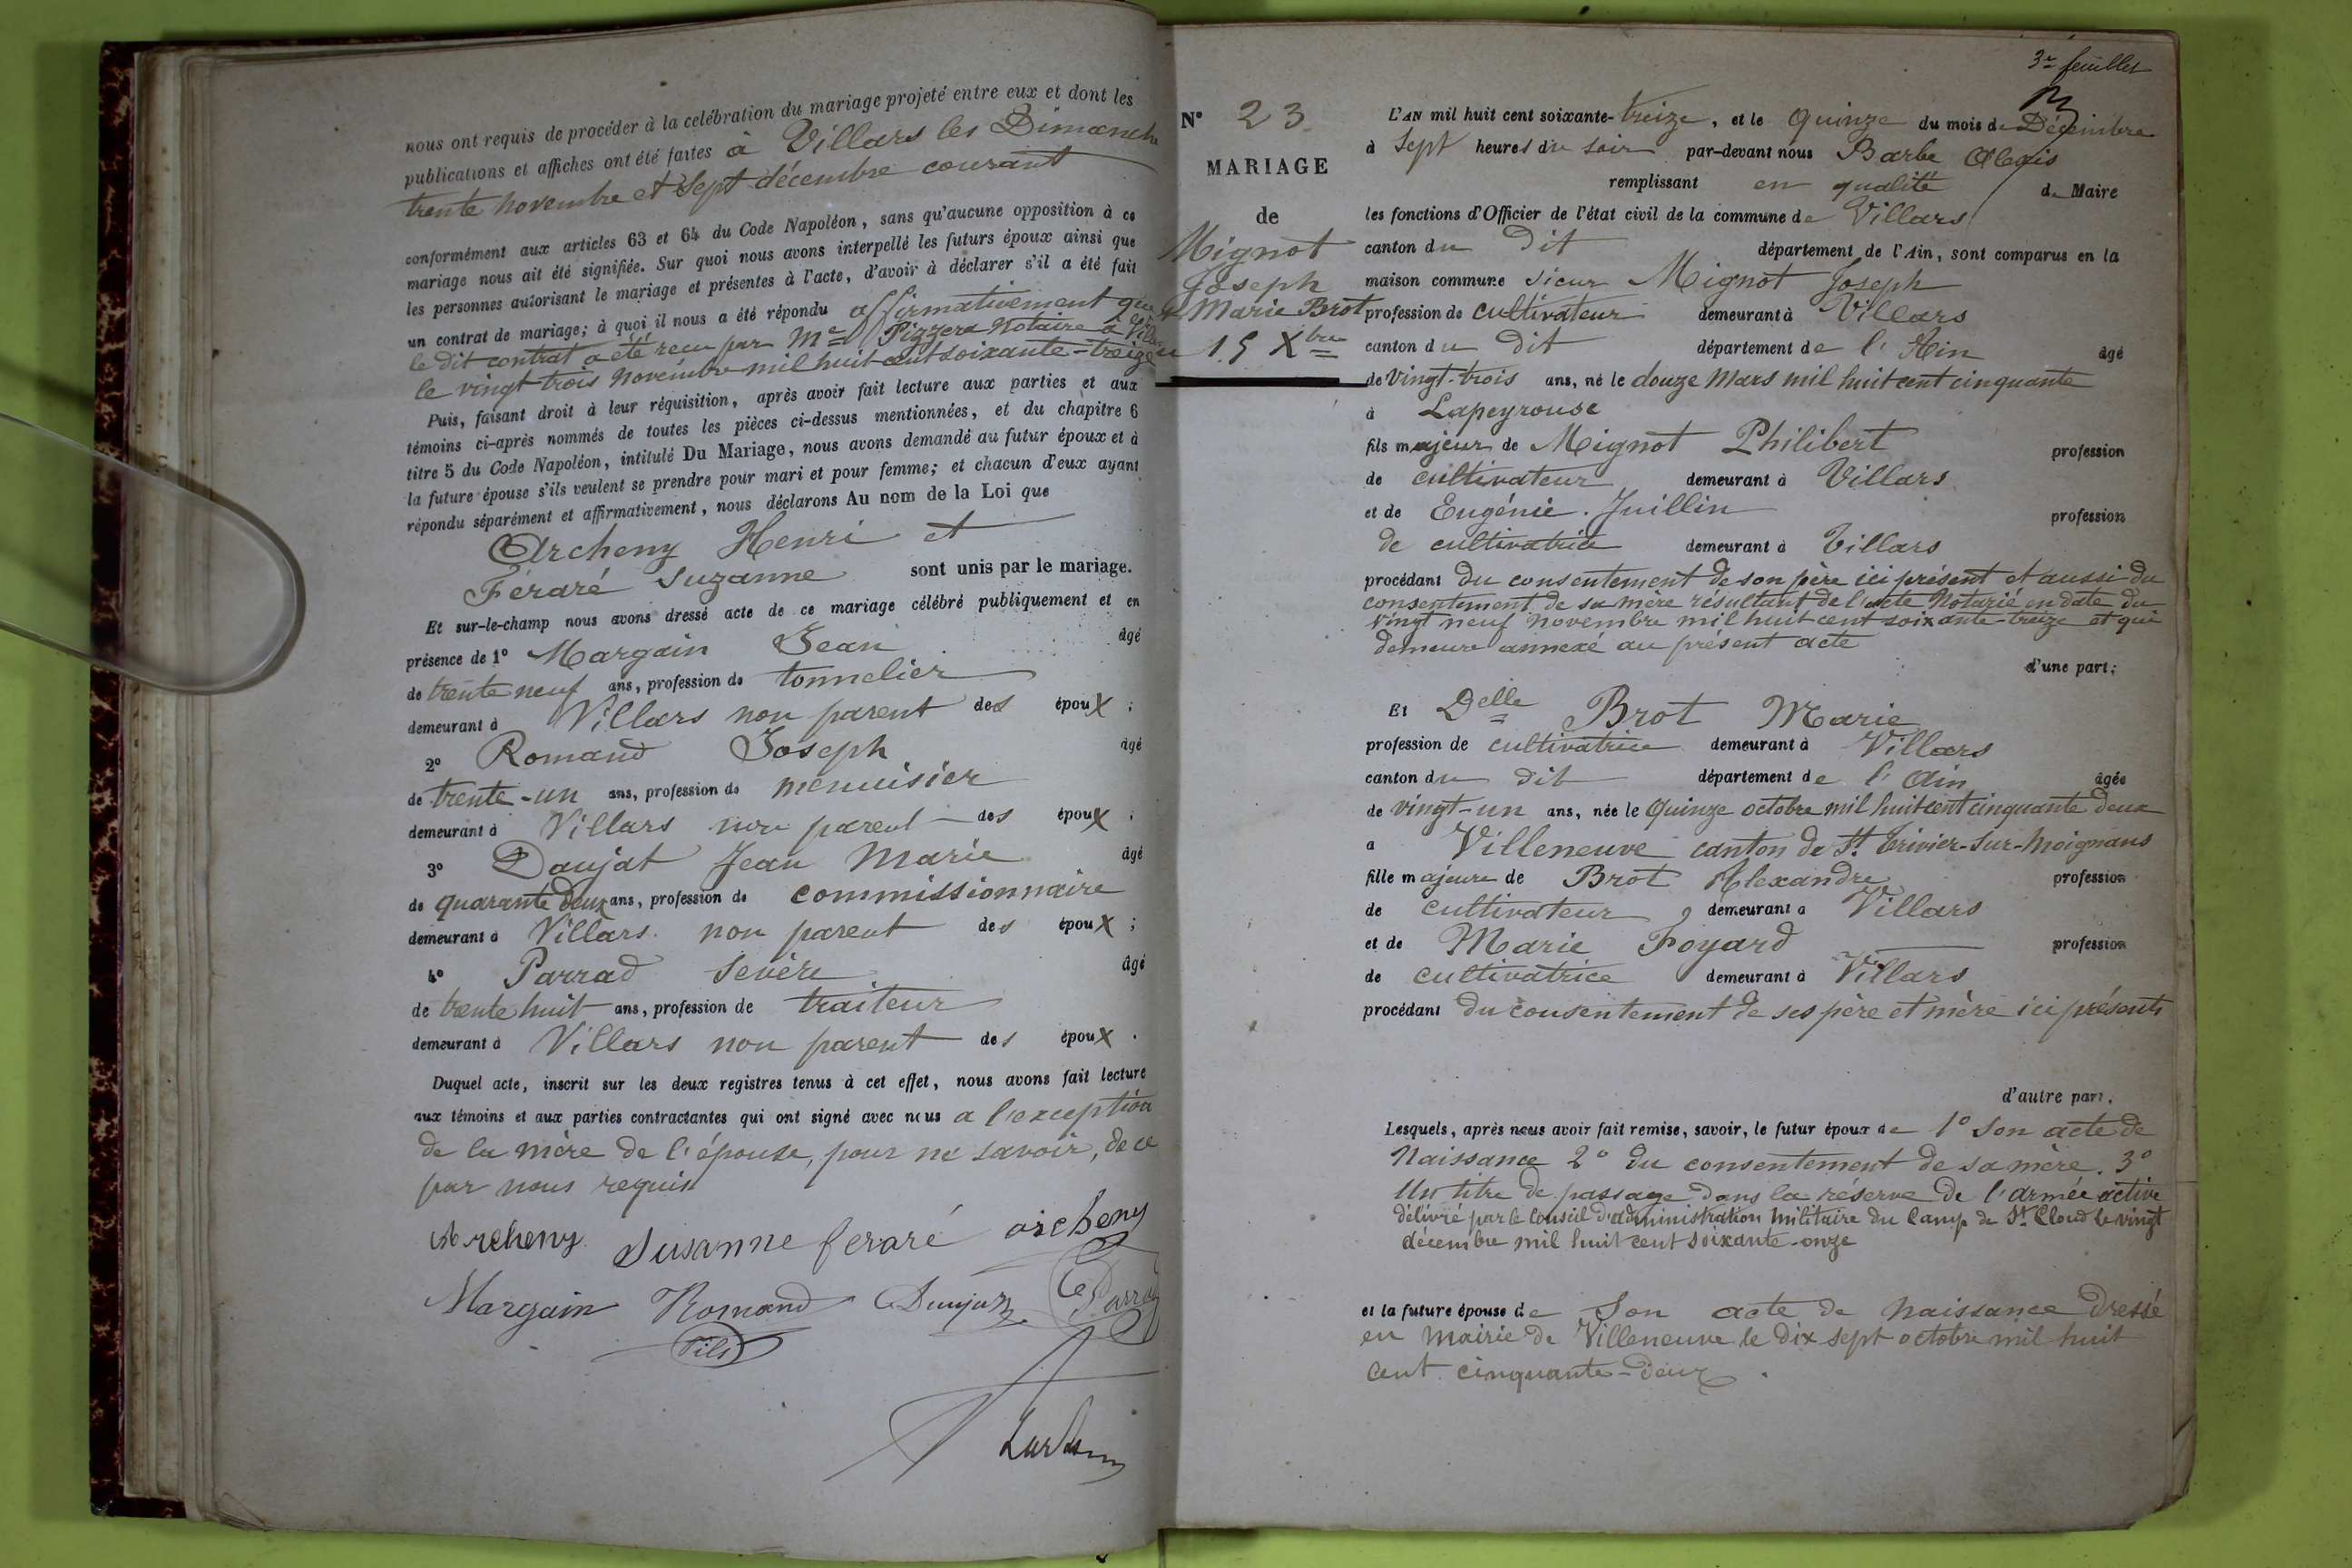 nous ont requis de procéder à la celébration du mariage projeté entre eux et dont les
publications et affiches ont été faites à Villars les Dimanche
trente Novembre et Sept décembre courant
conformément aux articles 63 et 64 du Code Napoléon, sans qu'aucune opposition à ce
mariage nous ait été signifiée. Sur quoi nous avons interpellé les futurs époux ainsi que
les personnes autorisant le mariage et présentes à l'acte, d'avoir à déclarer s'il a été fait
un contrat de mariage; à quoi il nous a été répondu affirmativement que
le dit contrat a été reçu par Me Pizzera Notaire à
le vingt trois Novembre mil huit cent soixante-treize
Puis, faisant droit à leur réquisition, après avoir fait lecture aux parties et aux
témoins ci-après nommés de toutes les pièces ci-dessus mentionnées, et du chapitre 6
titre 5 du Code Napoléon, intitulé Du Mariage, nous avons demandé au futur époux et à
la future épouse s'ils veulent se prendre pour mari et pour femme; et chacun d'eux ayant
répondu séparément et affirmativement, nous déclarons Au nom de la Loi que
Archeny Henri et
Feraré Suzanne sont unis par le mariage.
Et sur-le-champ nous avons dressé acte de ce mariage célébré publiquement et en
présence de 1° Margain Jean âgé
de trente neuf ans, profession de tonnelier
demeurant à Villars non parent des époux ;
2° Romand Joseph âgé
de trente-un ans, profession de menuisier
demeurant à Villars non parent des époux ;
3° Daujat Jean Marie âgé
de quarante deux ans, profession de commissionnaire
demeurant à Villars non parent des époux ;
4° Parrad Sevère âgé
de trente huit ans, profession de traiteur
demeurant à Villars non parent des époux .
Duquel acte, inscrit sur les deux registres tenus à cet effet, nous avons fait lecture
aux témoins et aux parties contractantes qui ont signé avec nous a l'exception
de la mère de l'épouse, pour ne savoir, de ce
par nous requis
Archeny Susanne feraré archeny
Margain Romand
fils
3e feuillet
N° 23
MARIAGE
de
Mignot
Joseph
& Marie Brot
15 Xbre
L'AN mil huit cent soixante-treize, et le Quinze du mois de Décembre
à Sept heures du soir par-devant nous Barbe Alexis
remplissant en qualité de Maire
les fonctions d'Officier de l'état civil de la commune de Villars
canton du Dit département de l'Ain, sont comparus en la
maison commune Sieur Mignot Joseph
profession de cultivateur demeurant à Villars
canton du Dit département de l'Ain âgé
de Vingt-trois ans, né le douze Mars mil huit cent cinquante
à Lapeyrouse
fils majeur de Mignot Philibert profession
de cultivateur demeurant à Villars
et de Eugénie Juillin profession
de cultivatrice demeurant à Villars
procédant du consentement de son père ici présent et aussi du
consentement de sa mère résultant de l'acte Notarié en date du
vingt neuf novembre mil huit cent soixante-treize et qui
demeure annexé au présent acte
d'une part;
Et Delle Brot Marie
profession de cultivatrice demeurant à Villars
canton du dit département de l'Ain âgée
de vingt-un ans, née le Quinze octobre mil huit cent cinquante deux
a Villeneuve canton de St Trivier-sur-Moignans
fille majeure de Brot Alexandre profession
de cultivateur, demeurant a Villars
et de Marie Foyard profession
de cultivatrice demeurant à Villars
procédant du consentement de ses père et mère ici présents
d'autre part.
Lesquels, après nous avoir fait remise, savoir, le futur époux de 1° Son acte de
Naissance 2° du consentement de sa mère. 3°
Un titre de passage dans la réserve de l'armée active
délivré par le Conseil d'administration Militaire du Camp de St Cloud le vingt
décembre mil huit cent soixante-onze
et la future épouse de Son acte de Naissance dressé
en Mairie de Villeneuve le dix sept octobre mil huit
cent cinquante-deux.